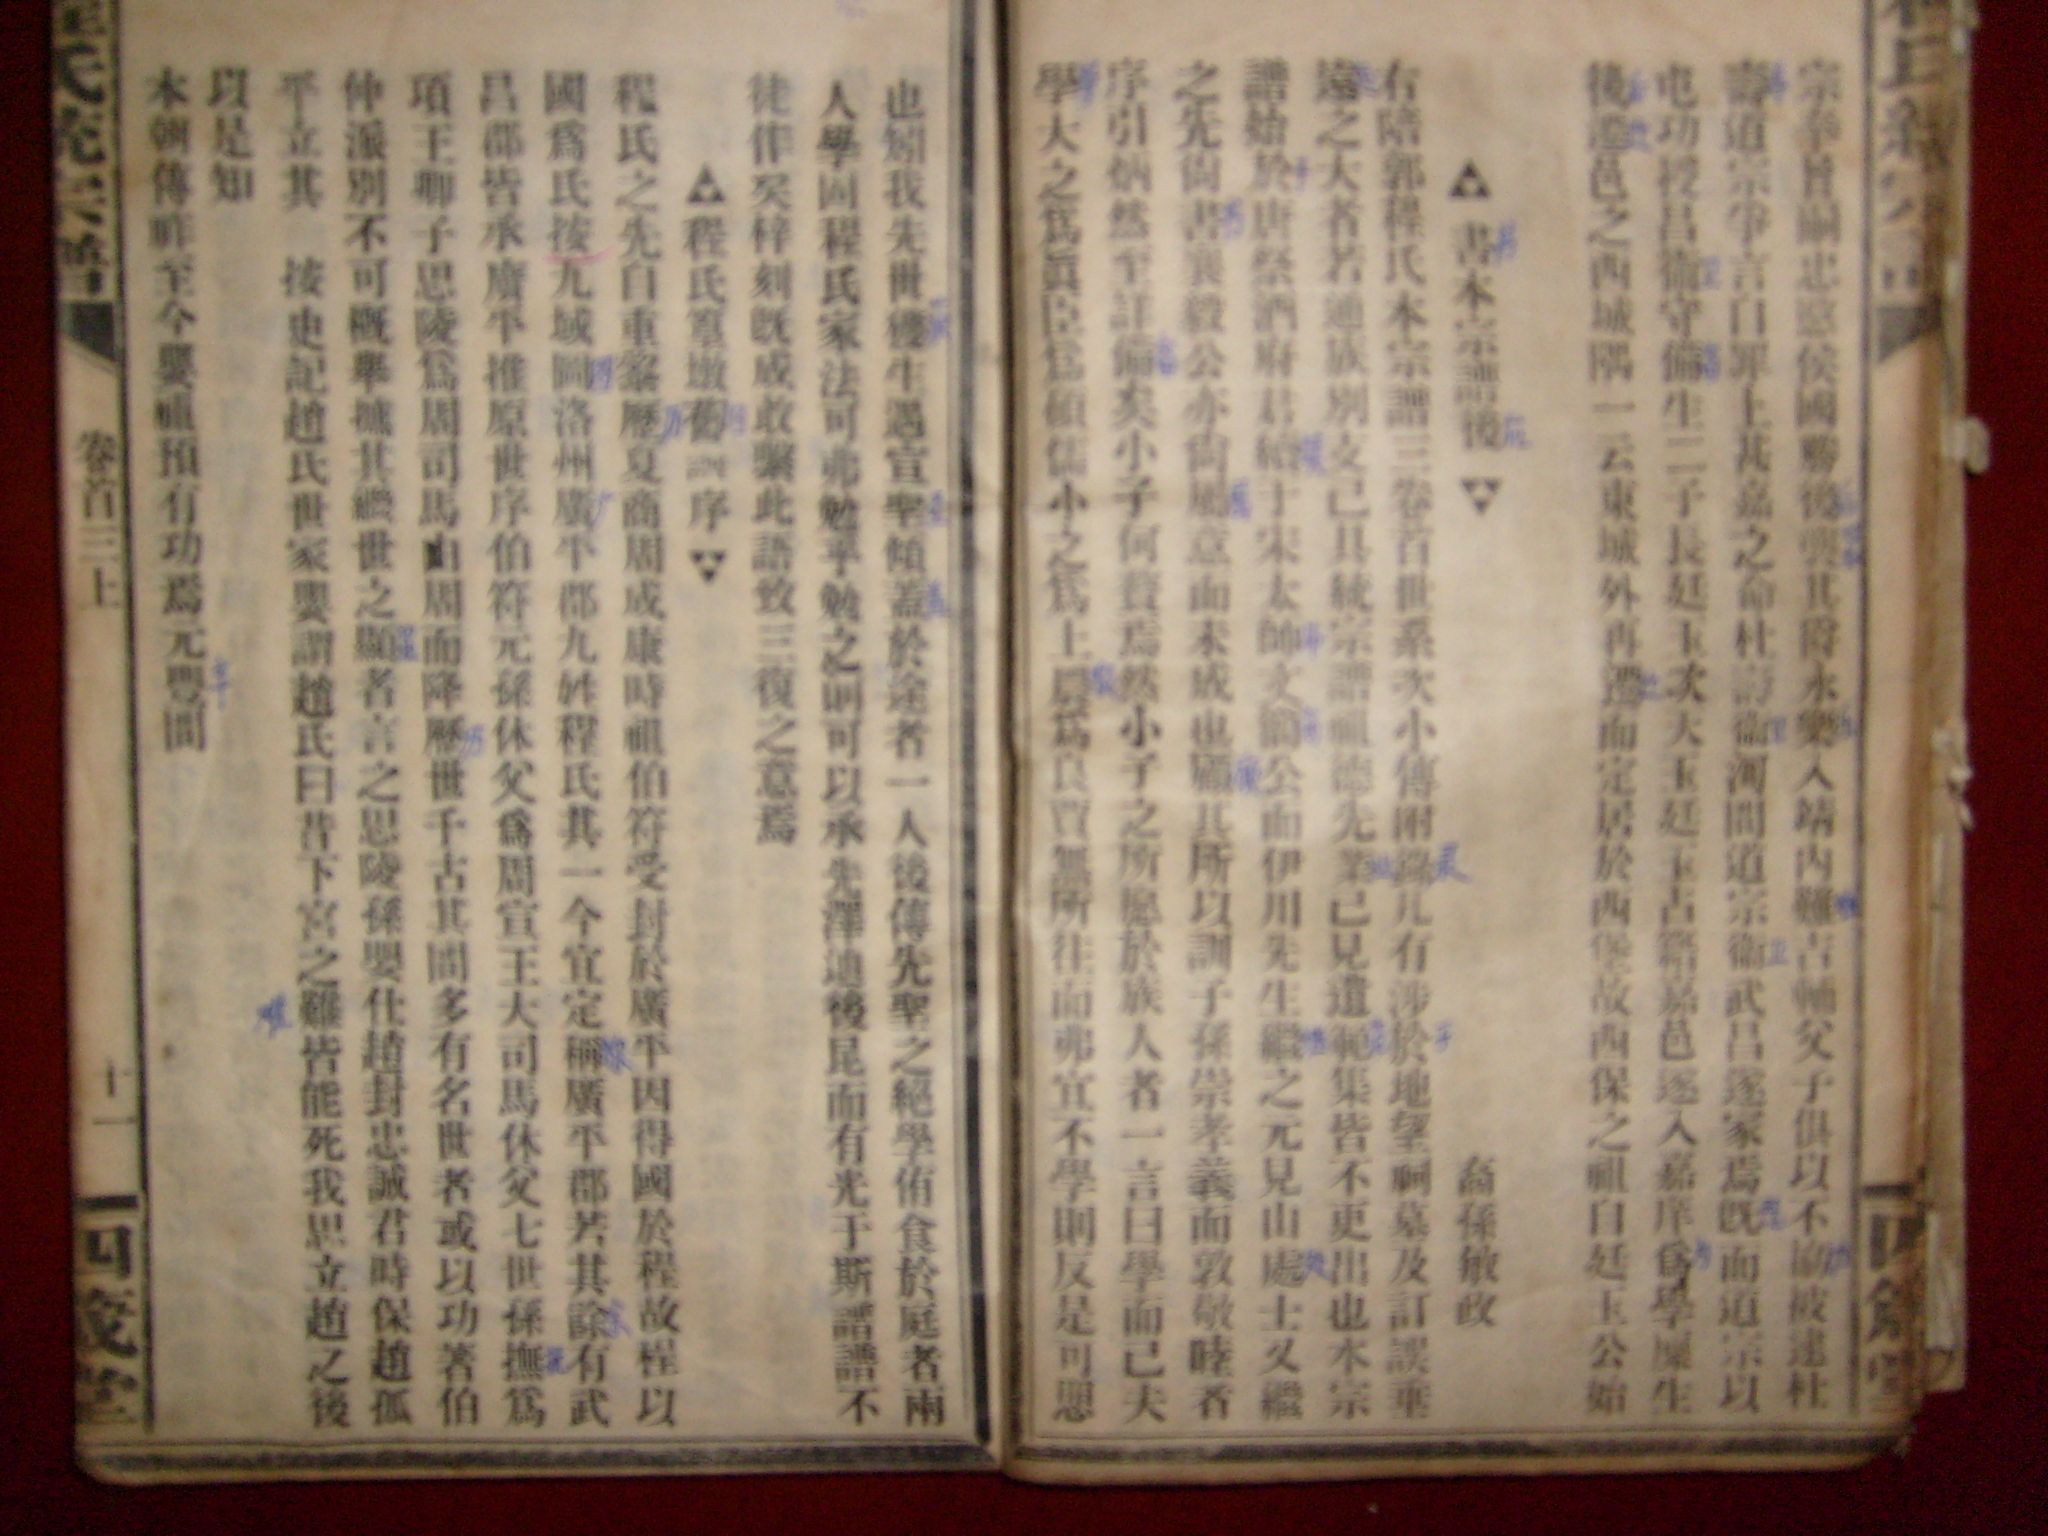 宗奉旨嗣忠愍侯國勝後興其爵永樂入靖內難古軸父子俱以不協被逮杜
壽道宗爭言自罪上甚嘉之命杜訪衛河間道宗衛武昌遂家焉既而道宗以
屯功授昌衛守備生二子長廷玉次大玉廷玉占籍嘉邑遂入嘉庠為學廩生
後遷邑之西城隅一云東城外再遷而定居於西堡故西保之祖自廷玉公始
書本宗譜後
裔孫敏政
右陪郭程氏本宗譜三卷首世系次小傳附錄凡有涉於地望祠墓及訂誤垂
遠之大者若通族別支已具統宗譜祖德先業已見遺範集皆不更出也本宗
譜始於唐祭酒府君續于宋太師文簡公而伊川先生繼之元見山處士又繼
之先尙書襄毅公亦尙屬意而未成也顧其所以訓子孫崇孝義而敦敬睦者
序引炳然至詳備矣小子何贅焉然小子之所愿於族人者一言曰學而已夫
學大之爲眞臣爲碩儒小之爲上農爲良賈無所往而弗宜不學則反是可慁
也矧我先世挺生遇宣聖傾蓋於途者一人後傳先聖之絕學侑食於庭者兩
人學固程氏家法可弗勉乎勉之則可以承先澤迪後昆而有光于斯譜譜不
徒作矣梓刻既成敢繫此語致三復之意焉
程氏篁墩舊訓序
程氏之先自重黎歷夏商周成康時祖伯符受封於廣平因得國於程故程以
國爲氏按九域圖洛州廣平郡九姓程氏其一今宜定稱廣平郡若其餘有武
昌郡皆承廣平推原世序伯符元孫休父爲周宣王大司馬休父七世孫撫爲
項王卿子思陵爲周司馬由周而降歷世千古其間多有名世者或以功著伯
仲派別不可概舉摭其繼世之顯者言之思陵孫嬰仕趙封忠誠君時保趙孤
平立其　按史記趙氏世家嬰謂趙氏曰昔下宮之難皆能死我思立趙之後
以是知
本朝傳祚至今嬰祖預有功焉元豐間
程氏統宗譜
卷首三上
十一
四箴堂